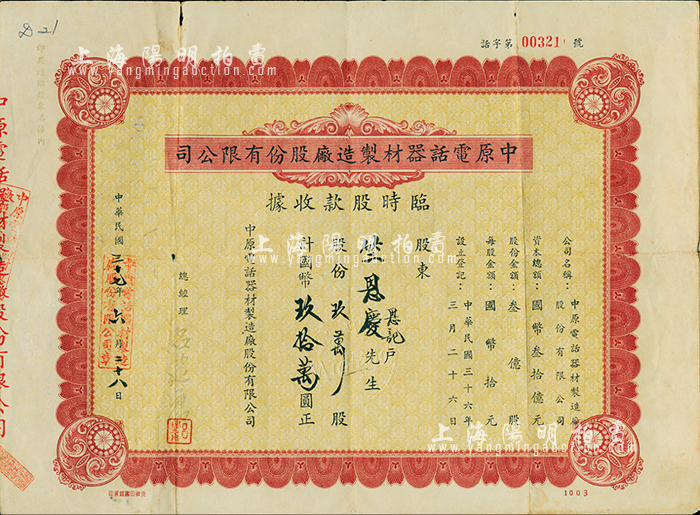 D-21
話字第 00321 號
司公限有份股廠造製材器話電原中
據收款股時臨
公司名稱：中原電話器材製造廠股份有限公司
資本總額：國幣叁拾億元
股份金額：叁億股
每股金額：國幣拾元
設立登記：中華民國三十六年三月二十六日
股東
恩慶先生
恩記戶
股份玖萬股
計國幣玖拾萬圓正
中原電話器材製造廠股份有限公司
總經理
中華民國三十七年六月二十八日
中原電話器材製造廠股份有限公司
1003
上海陽明拍賣
www.yangmingauction.com
上海陽明拍賣
www.yangmingauction.com
上海陽明拍賣
www.yangmingauction.com